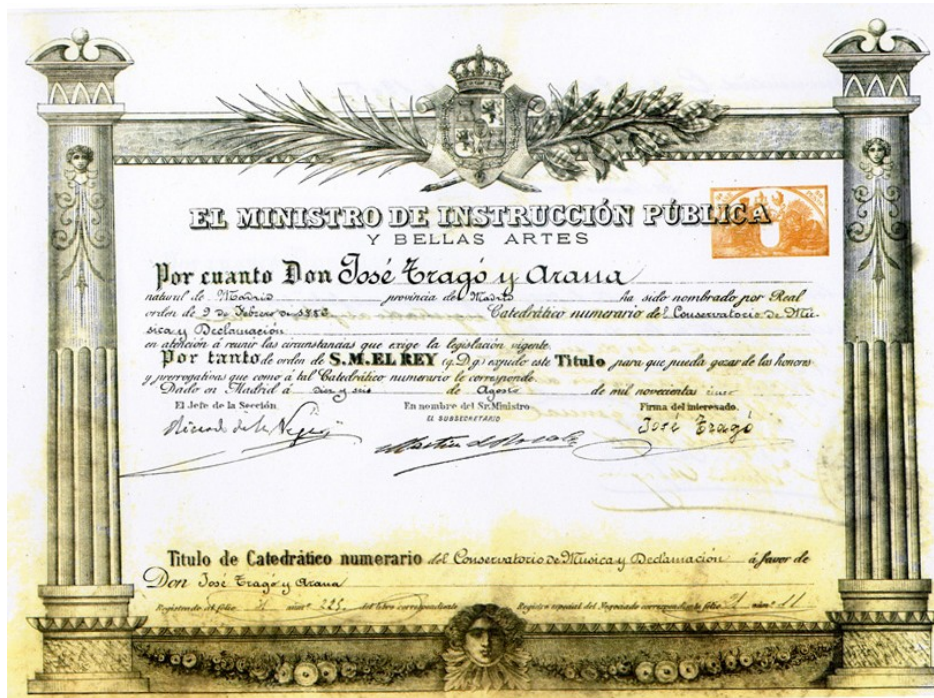 EL MINISTRO DE INSTRUCCIÓN PÚBLICA
Y BELLAS ARTES
Por cuanto Don José Tragó y Arana
natural de Madrid provincia de Madrid ha sido nombrado por Real
orden de 9 de Febrero de 1886 Catedrático numerario del Conservatorio de Mú-
sica y Declamación
en atención á reunir las circunstancias que exige la legislación vigente.
Por tanto de orden de S.M. EL REY (q. D. g.) expido este Título para que pueda gozar de los honores
y prerrogativas que como á tal Catedrático numerario le corresponde.
Dado en Madrid á diez y seis de Agosto de mil novecientos cinco
El Jefe de la Sección, En nombre del Sr. Ministro Firma del interesado.
EL SUBSECRETARIO
José Tragó
Título de Catedrático numerario del Conservatorio de Música y Declamación á favor de
Don José Tragó y Arana
Registrado al folio núm.º 225, del libro correspondiente Registro especial del Negociado correspondiente folio 21 núm.º 11